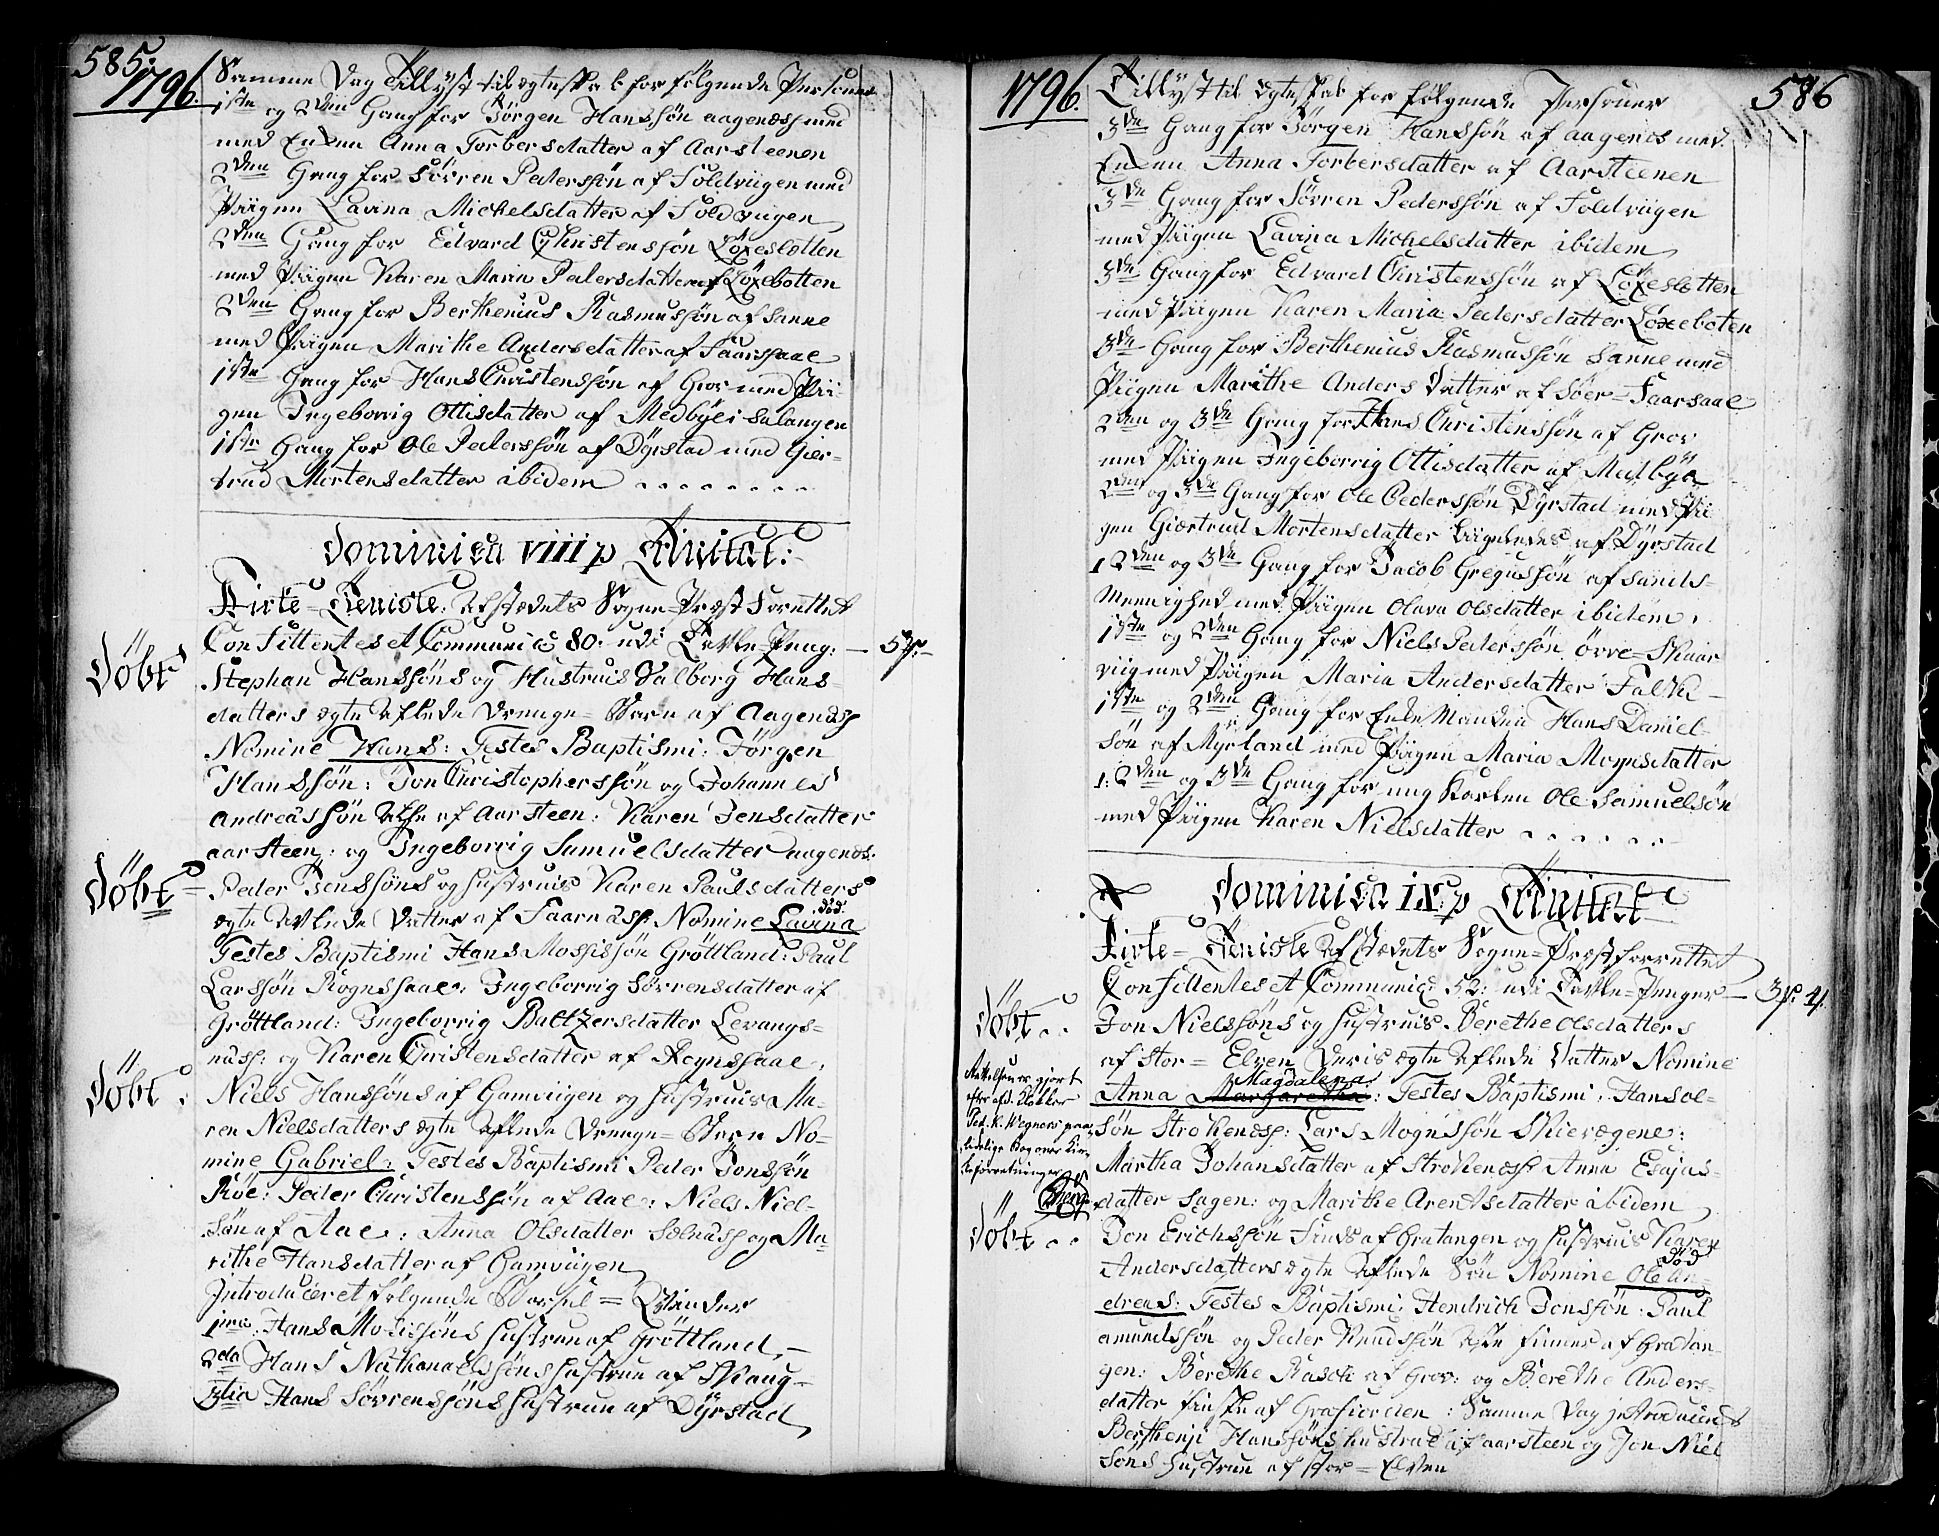 585.
1796.
Samme Dag Tillyst til ægteskab for følgende Personer
1ste og 2den Gang for Jörgen Hanssön aagenæss med
med Enken Anna Torbersdatter af Aarsteenen
2den Gang for Sörren Pederssön af Foldviigen med
Piigen Lavina Michelsdatter af Foldviigen
2den Gang for Edvard Christenssön Löxesletten
med Piigen Karen Maria Pedersdatter af Löxebotten
2den Gang for Berthenius Rasmussön af Sanne
med Piigen Marithe Andersdatter af Faarsaae
1ste Gang for Hans Christenssön af Grov med Pii-
gen Ingeborrig Ottisdatter af Medbye i Salangen
1ste Gang for Ole Pederssön af Dÿrstad med Gier-
trud Mortensdatter ibidem
Dominica VIII p Trinitat:
Kirke-Tieniste: af Stædets Sogne-Præst Forrettet
Confitentes et Communic 80: udi Tavle-Peng: — 5 -
Döbt
Stephan Hanssöns og Hustrues Valborg Hans-
datters ægte aflede Drenge-Barn af Aagenæss
Nomine Hans: Testes Baptismi: Jörgen
Hanssön: Jon Christopherssön og Johannes
Andreassön alle af Aarsteen: Karen Jensdatter
aarsteen: og Ingeborrig Samuelsdatter aagenæs:
Döbt
Peder Jenssöns og Hustrues Karen Paulsdatters
ægte aflede Datter af Faarnæss: Nomine Lavina
död
Testes Baptismi Hans Mossissön Gröttland: Paul
Larssön Rognssaae: Ingeborrig Sörrensdatter af
Gröttland: Ingeborrig Baltzersdatter Levangs-
næss: og Karen Christensdatter af Rognssaae
Döbt
Niels Hanssöns af Gamviigen og Hustrues Ma-
ren Nielsdatters ægte aflede Drenge-Barn No-
mine Gabriel: Testes Baptismi Peder Jonssön
Röe: Peder Christenssön af Aae: Niels Niel-
Sön af Aae: Anna Olsdatter Selnæss og Ma-
rithe Hansdatter af Gamviigen
Introduceret følgende Barsel-Qvinder
1ma: Hans Mosissöns Hustrue af Gröttland,—
2da Hans Nathanaelssöns Hustrue af Skaug-
3tia Hans Sövrenssöns Hustrue af Dÿrstad
1796.
586
Tillyst til Egteskab for følgende Personer
3de Gang for Jörgen Hanssön af aagenæs med
Enken Anna Torbersdatter af Aarsteenen
3de Gang for Sörren Pederssön af Foldviigen
med Piigen Lavina Michelsdatter ibidem
3de Gang for Edvard Christenssön af Löxesletten
med Piigen Karen Maria Pedersdatter Löxeboten
3de Gang for Berthenius Rasmussön Sanne med
Piigen Marithe Anders Datter af Söer-Faarsaae
2den og 3de Gang for Hans Christenssön af Grov
med Piigen Ingeborrig Ottisdatter af Medbÿe
2den og 3de Gang for Ole Pederssön Dÿrstad med Pii
gen Giertrud Mortensdatter ligeledes af Dÿrstad
1 2den og 3de Gang for Jacob Gregussön af Sands-
Meenighed med Piigen Olava Olsdatter ibidem.
1ste og 2den Gang for Niels Pederssön Övre-Skaar
viig med Piigen Maria Andersdatter
1ste og 2den Gang for Enke Manden Hans Daniel-
Sön af Myrland med Piigen Maria Mognsdatter
1: 2den og 3de Gang for ung Karlen Ole Samuelsön
med Piigen Karen Nielsdatter
Dominica IX p Trinitat
Kirke-Tieniste af Stedets Sogne-Præst forrettet
Confitentes et Communic: 52: udi Tavle-Penger — 3 4
Döbt
Jon Nielssöns og Hustrues Berethe Olsdatters
af Stor-Elven Deris ægte aflede Datter Nomine
Magdalena
Anna Margaretha: Testes Baptismi: Hans Ol-
Rettelsen er gjort
efter afd. Klokker
Ped. K. Wegners paa-
lidelige Bog over Kir-
keforretninger
sön Strokenæss: Lars Mognssön Skierægene:
Martha Johansdatter af Strokenæss Anna Esajas-
datter Sagen: og Marithe Arentsdatter ibidem
Döbt
Jon Erichssön Finds af Gratangen og Hustrues Karen
Andersdatters ægte aflede Sön Nomine Ole An-
död
dreas: Testes Baptismi: Hendrich Jonssön: Paul
amundssön og Peder Knudssön alle Finner af Gratan-
gen: Berethe Rasch af Grov: og Berethe Anders-
datter af Grafiorden: Samme Dag introduceres
Berthenii Hanssöns hustrue af aarsteen og Jon Niel
Söns Hustrue af Stor-Elven